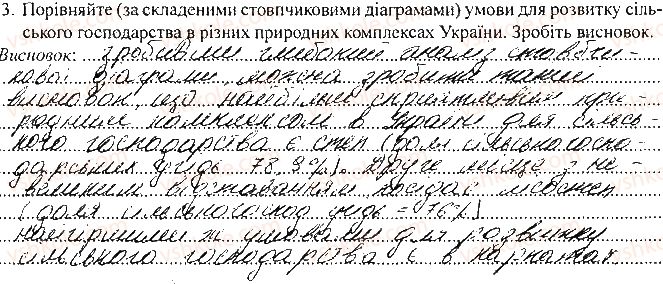 3. Порівняйте (за складеними стовпчиковими діаграмами) умови для розвитку сіль-
ського господарства в різних природних комплексах України. Зробіть висновок.
Висновок: зробивши глибокий аналіз стовбчи-
кової діаграми, можна зробити такий
висновок, що найбільш сприятливим при-
родним комплексом в Україні для сільсь-
кого господарства є степ (доля сільськогоспо-
дарських угідь 78,9%). Друге місце з не-
великим відставанням посідає лісостеп
(доля сільськогоспод угідь = 76%)
найгіршими ж умовами для розвитку
сільського господарства є в карпатах